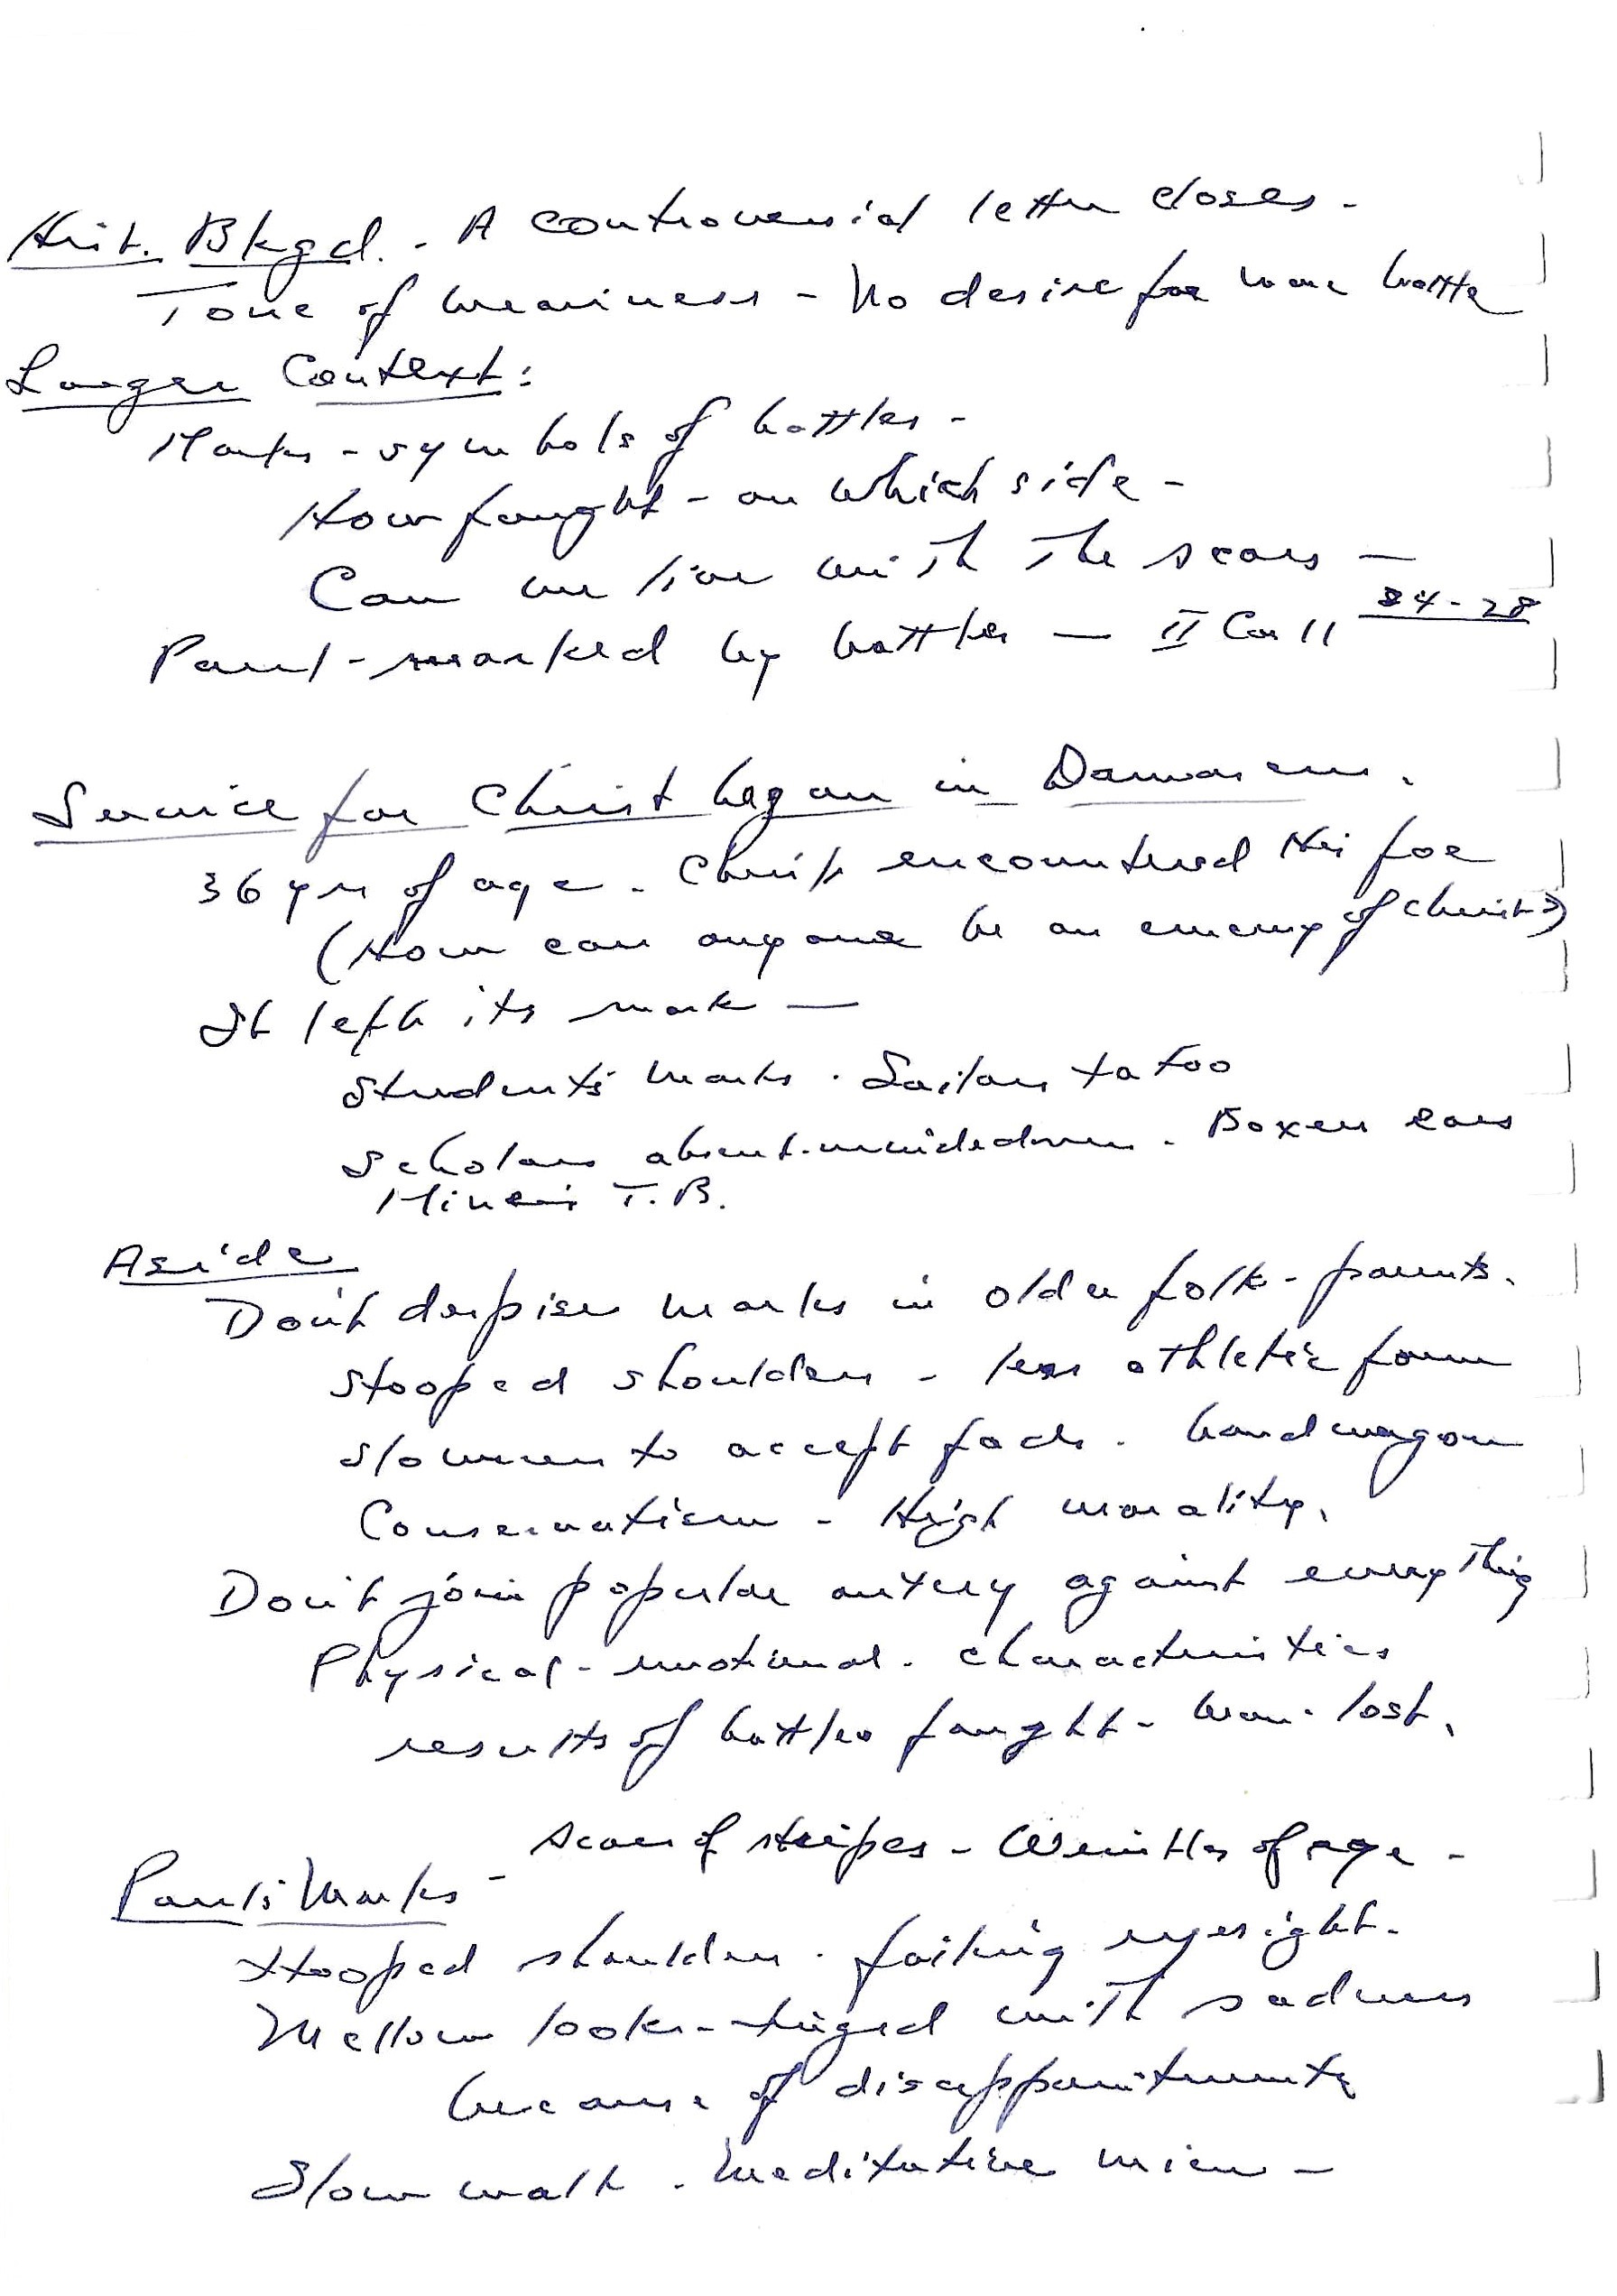 Hist. Bkgd. - A controversial letter closes -
Tone of weariness - No desire for more battle
Larger Context:
Marks - symbols of battles -
How fought - on which side -
Can we live with the scars -
Paul - marked by battles - II Cor 11 24-28
Service for Christ began in Damascus.
36 yrs of age - Christ encountered His foe
(How can anyone be an enemy of Christ?)
It left its mark -
Students' marks - Sailors tatoo
Scholars absent-mindedness - Boxers ears
Miner's T.B.
Aside
Don't despise marks in older folk - parents.
Stooped shoulders - less athletic form
Slowness to accept fads - bandwagon
Conservatism - High morality.
Don't join popular outcry against everything
Physical - emotional - characteristics
results of battles fought - won - lost.
Paul's Marks - Scars of stripes - Wrinkles of age -
Stooped shoulders - failing eyesight -
Mellow look - tinged with sadness
because of disappointments
Slow walk - Meditative mien -